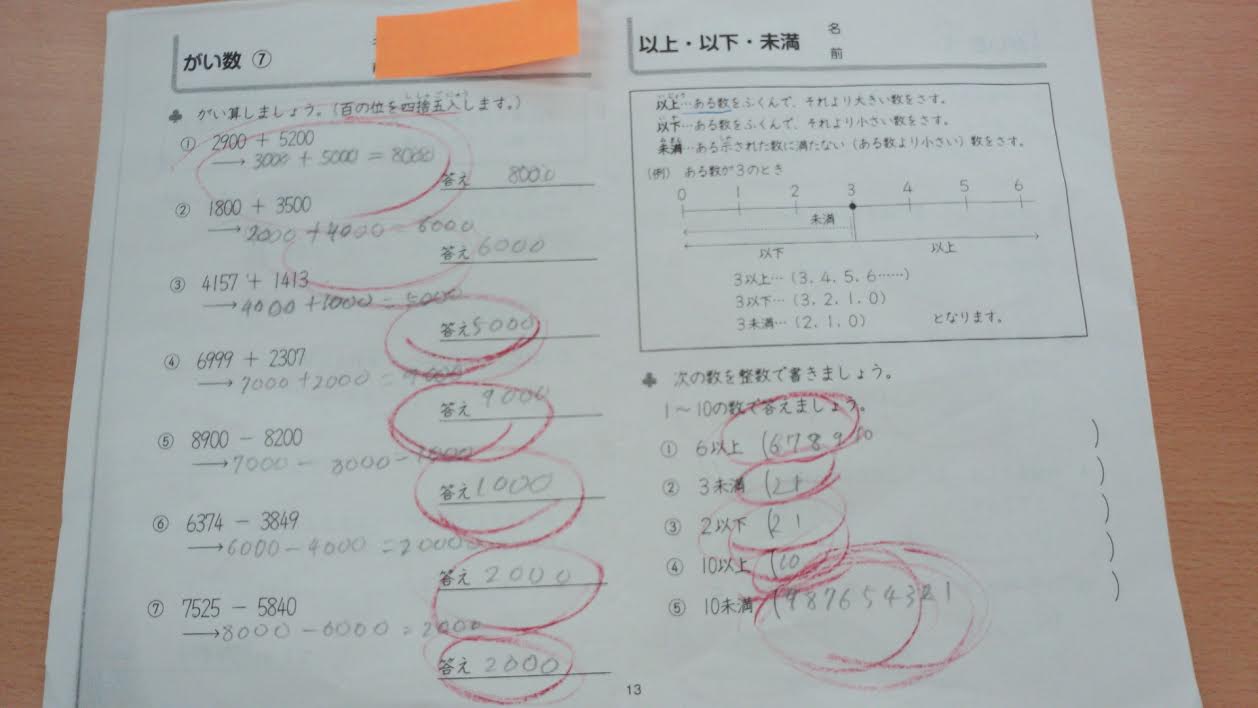 がい数 ⑦
がい算しましょう。(百の位を四捨五入します。)
① 2900 + 5200
→ 3000 + 5000 = 8000
答え 8000
② 1800 + 3500
→ 2000 + 4000 = 6000
答え 6000
③ 4157 + 1413
→ 4000 + 1000 = 5000
答え 5000
④ 6999 + 2307
→ 7000 + 2000 = 9000
答え 9000
⑤ 8900 - 8200
→ 7000 - 8000 -
答え 1000
⑥ 6374 - 3849
→ 6000 - 4000 = 2000
答え 2000
⑦ 7525 - 5840
→ 8000 - 6000 = 2000
答え 2000
以上・以下・未満
名
前
以上…ある数をふくんで、それより大きい数をさす。
以下…ある数をふくんで、それより小さい数をさす。
未満…ある示された数に満たない(ある数より小さい)数をさす。
(例) ある数が3のとき
0 1 2 3 4 5 6
未満
以下 以上
3以上…(3, 4, 5, 6……)
3以下…(3, 2, 1, 0)
3未満…(2, 1, 0) となります。
次の数を整数で書きましょう。
1〜10の数で答えましょう。
① 6以上 (6 7 8 9 10 )
② 3未満 (2 1 )
③ 2以下 (2 1 )
④ 10以上 (10 )
⑤ 10未満 (9 8 7 6 5 4 3 2 1 )
13